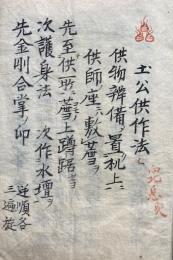 土公供作法
供物辨備置机上
供師座ニ敷薦
先至供所薦上蹲踞
次護身法 次作水壇 逆順各三遍旋
先金剛合掌印